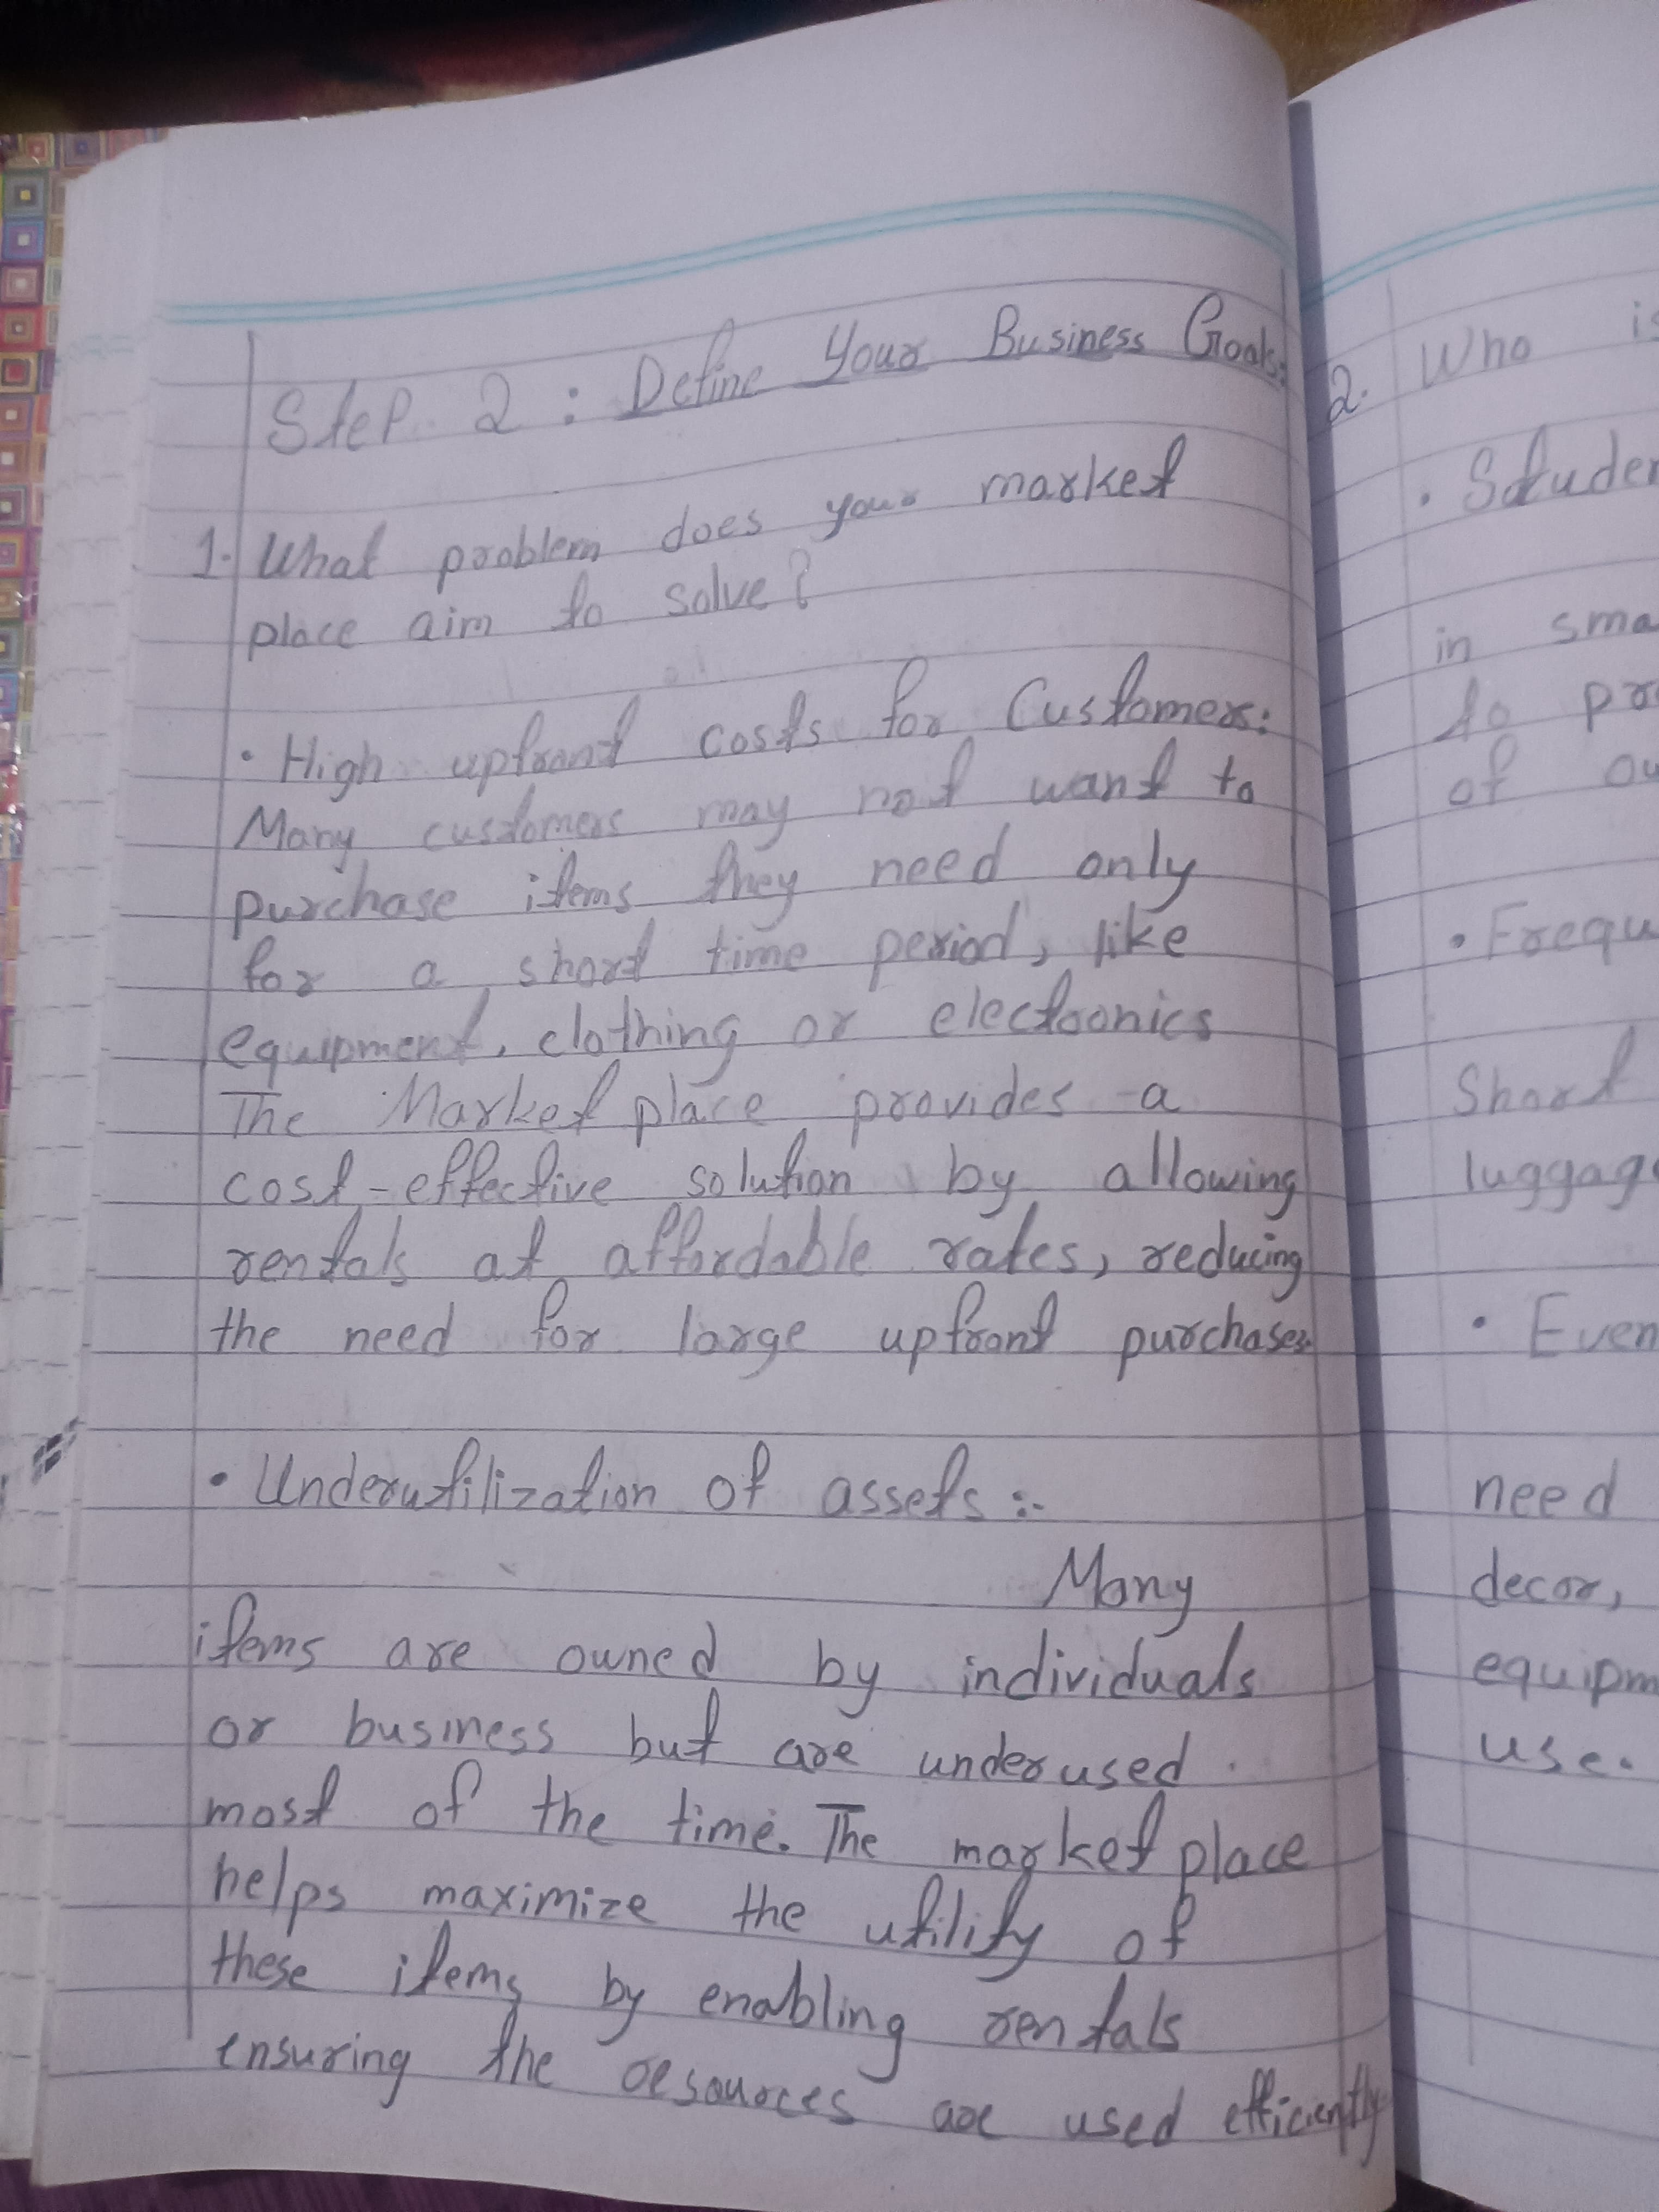 Step 2 : Define Your Business Goals:
1. What problem does your market
place aim to solve?
• High upfront costs for Customers:
Many customers may not want to
purchase items they need only
for a short time period, like
equipment, clothing or electronics
The Market place provides a
cost-effective solution by allowing
rentals at affordable rates, reducing
the need for large upfront purchases.
• Underutilization of assets :-
Many
items are owned by individuals
or business but are underused.
most of the time. The market place
helps maximize the utility of
these items by enabling rentals
ensuring the resources are used efficiently.
2. Who is
• Studen
in sma
to pro
of ou
• Frequ
Short
luggag
• Even
need
decor,
equipm
use.